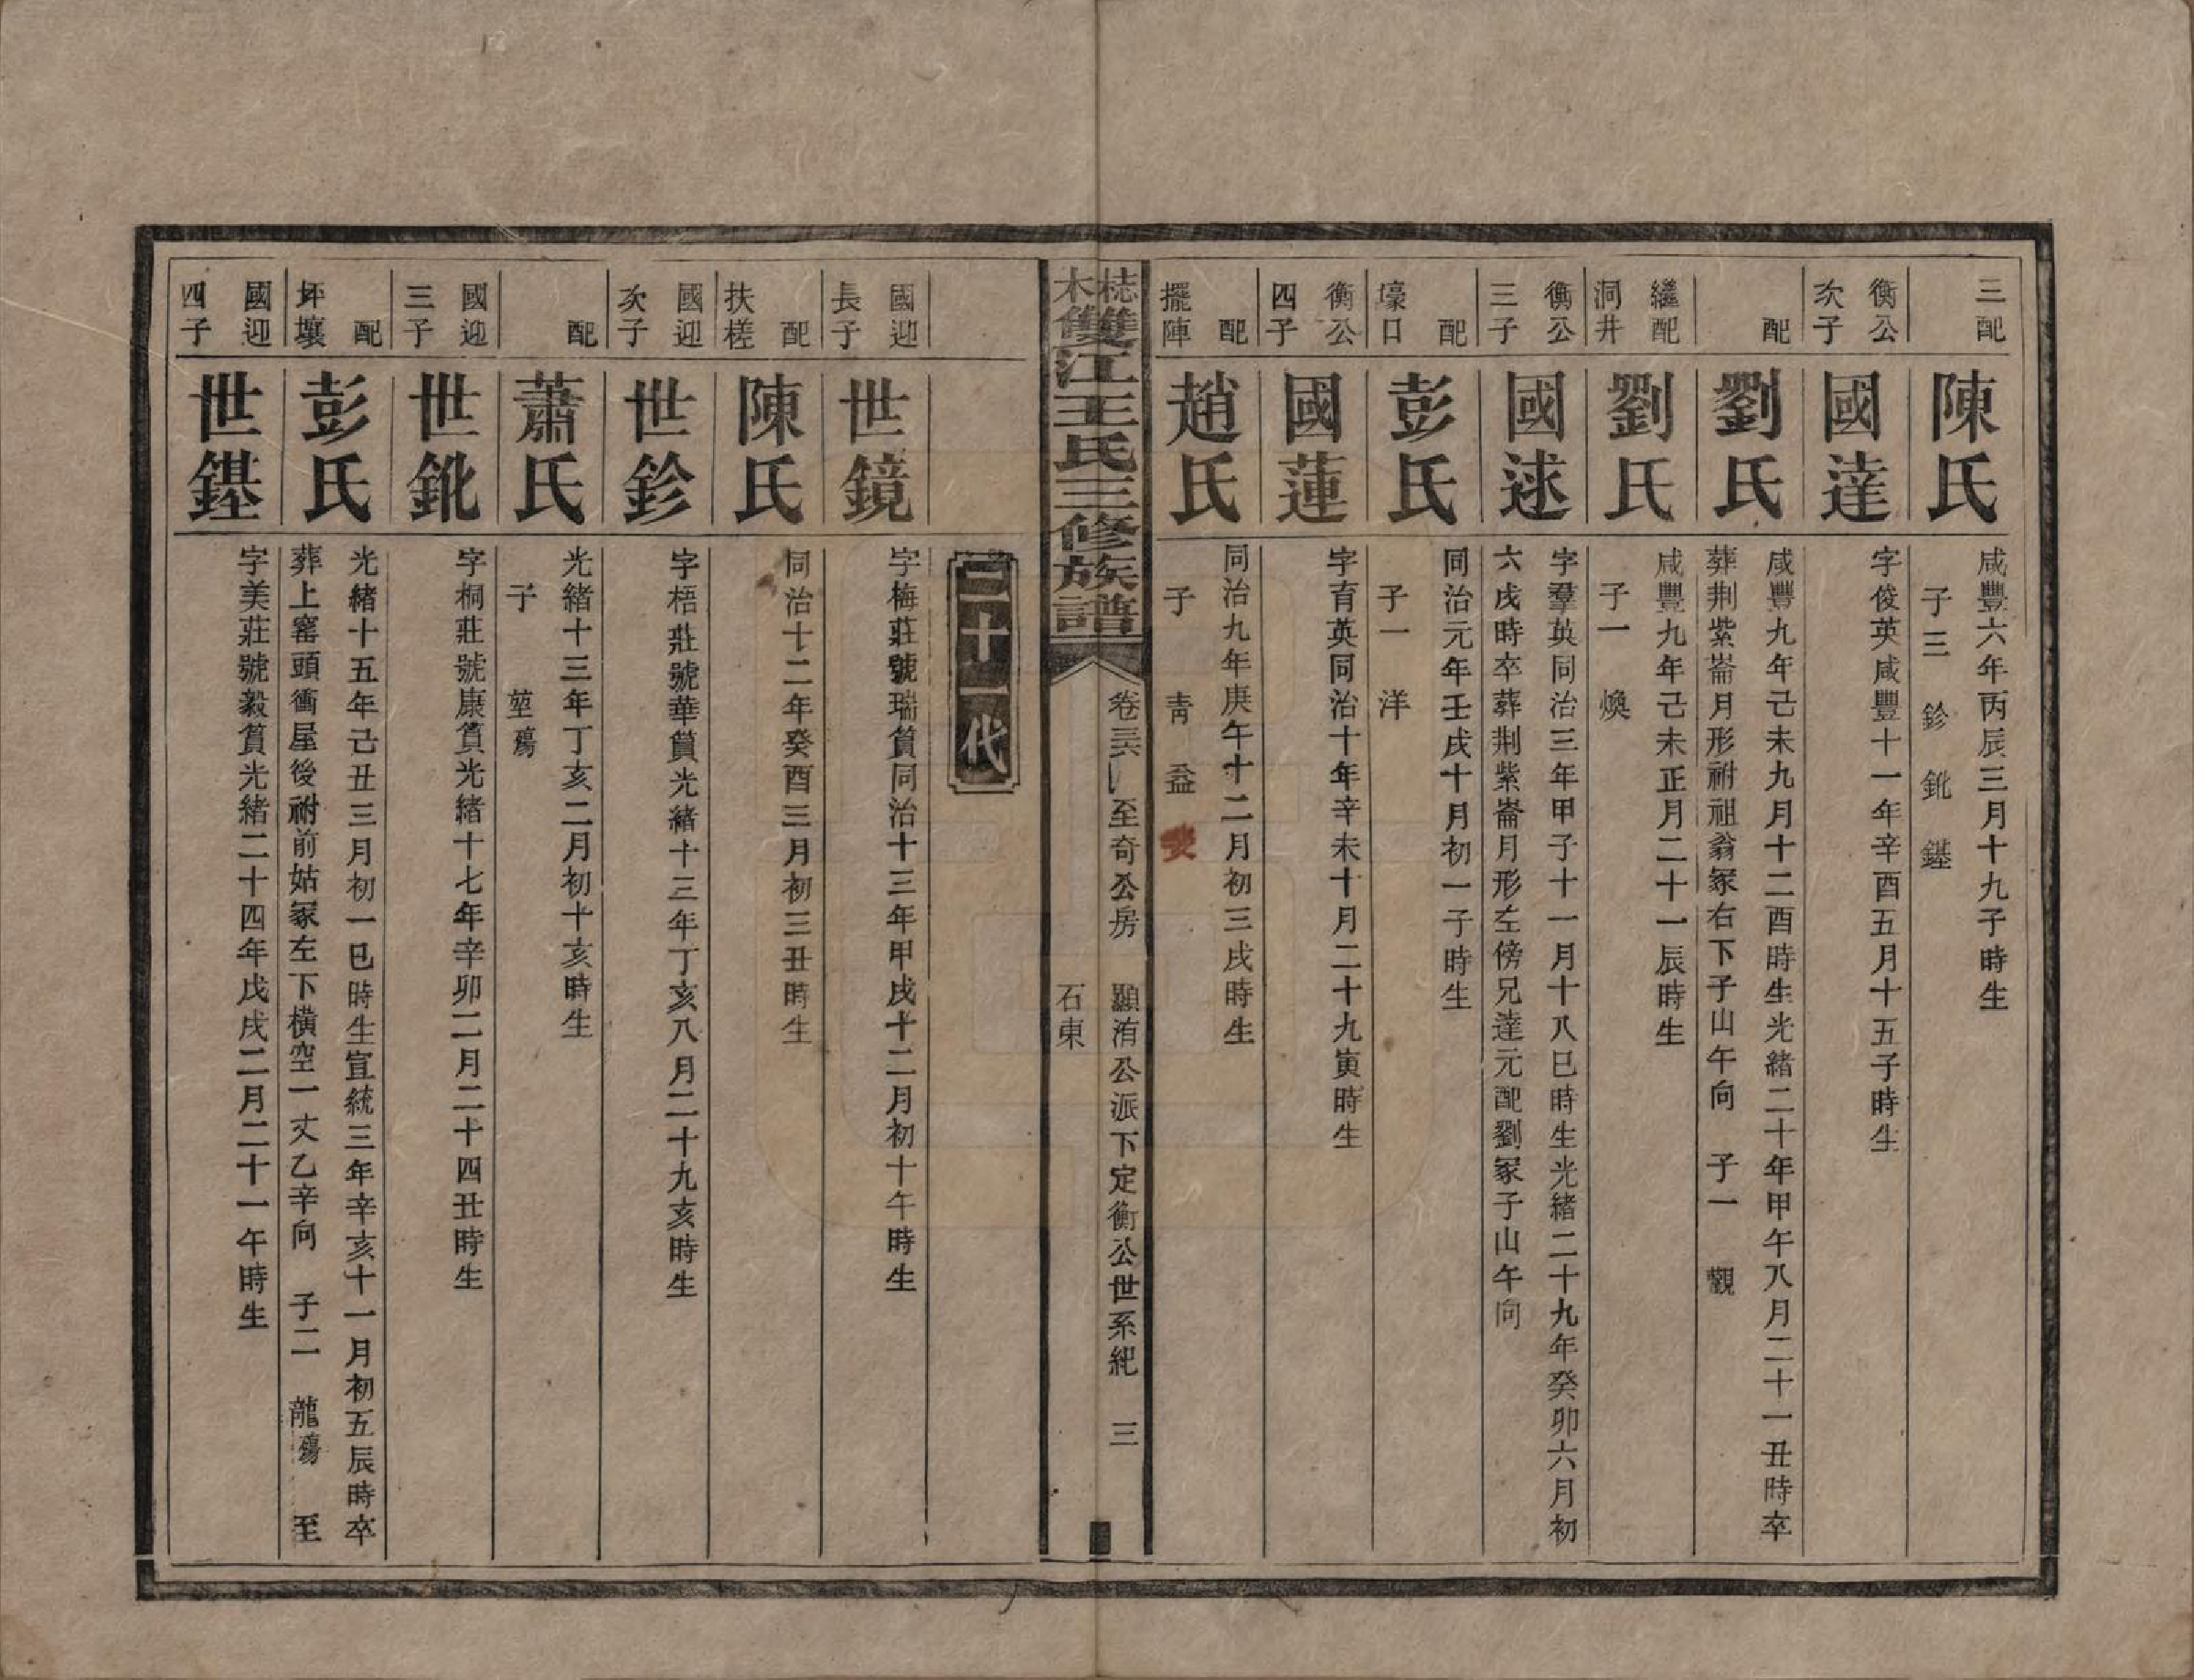 三配
陳氏
咸豐六年丙辰三月十九子時生
子三 鉁 鈋 鏶
衡公次子
國達
字俊英咸豐十一年辛酉五月十五子時生
配
劉氏
咸豐九年己未九月十二酉時生光緒二十年甲午八月二十一丑時卒
葬荆紫崙月形祔祖翁冢右下子山午向 子一 觀
繼配洞井
劉氏
咸豐九年己未正月二十一辰時生
子一 煥
衡公三子
國逑
字羣英同治三年甲子十一月十八巳時生光緒二十九年癸卯六月初
六戌時卒葬荆紫崙月形左傍兄達元配劉冢子山午向
配壕口
彭氏
同治元年壬戌十月初一子時生
子一 洋
衡公四子
國蓮
字育英同治十年辛未十月二十九寅時生
配擺陣
趙氏
同治九年庚午十二月初三戌時生
子 青 益
梽木雙江王氏三修族譜
卷三六
至奇公房 顯洧公派下定衡公世系紀 三
石東
二十一代
國迎長子
世鏡
字梅莊號瑞篔同治十三年甲戌十二月初十午時生
配扶槎
陳氏
同治十二年癸酉三月初三丑時生
國迎次子
世鉁
字梧莊號華篔光緒十三年丁亥八月二十九亥時生
配
蕭氏
光緒十三年丁亥二月初十亥時生
子 堃殤
國迎三子
世鈋
字桐莊號康篔光緒十七年辛卯二月二十四丑時生
配坪壤
彭氏
光緒十五年己丑三月初一巳時生宣統三年辛亥十一月初五辰時卒
葬上窰頭衝屋後祔前姑冢左下橫空一丈乙辛向 子二 龍殤 至
國迎四子
世鏶
字美莊號毅篔光緒二十四年戊戌二月二十一午時生